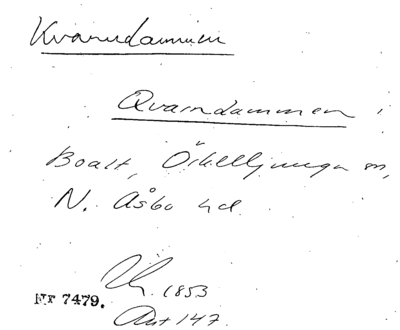 Kvarndammen
Qvarndammen i
Boalt, Örkelljunga sn,
N. Åsbo hd
1853
Nr 7479.
Akt 147.